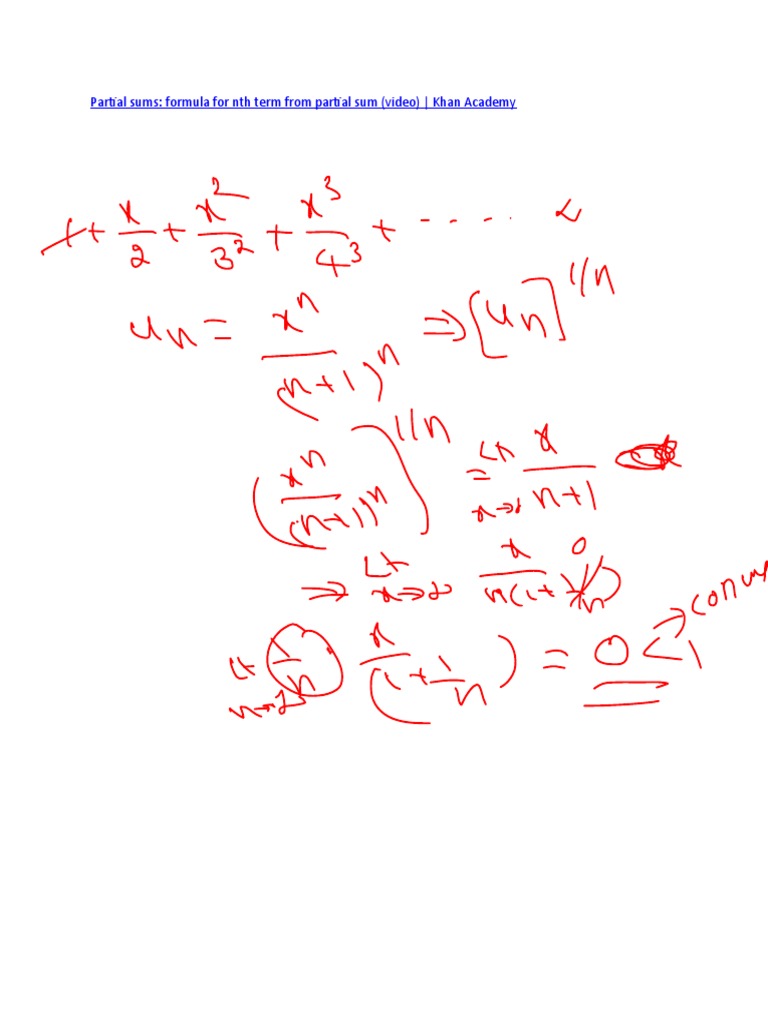 Partial sums: formula for nth term from partial sum (video) | Khan Academy
1 + x/2 + x²/3² + x³/4³ + - - - - ∞
uₙ = xⁿ/(n+1)ⁿ ⇒ [uₙ]^1/n
(xⁿ/(n+1)ⁿ)^1/n = Lt x→∞ x/n+1
⇒ Lt x→∞ x/n(1+1/n) 0
Lt n→∞ (1/n) x/(1+1/n) = 0 < 1 →